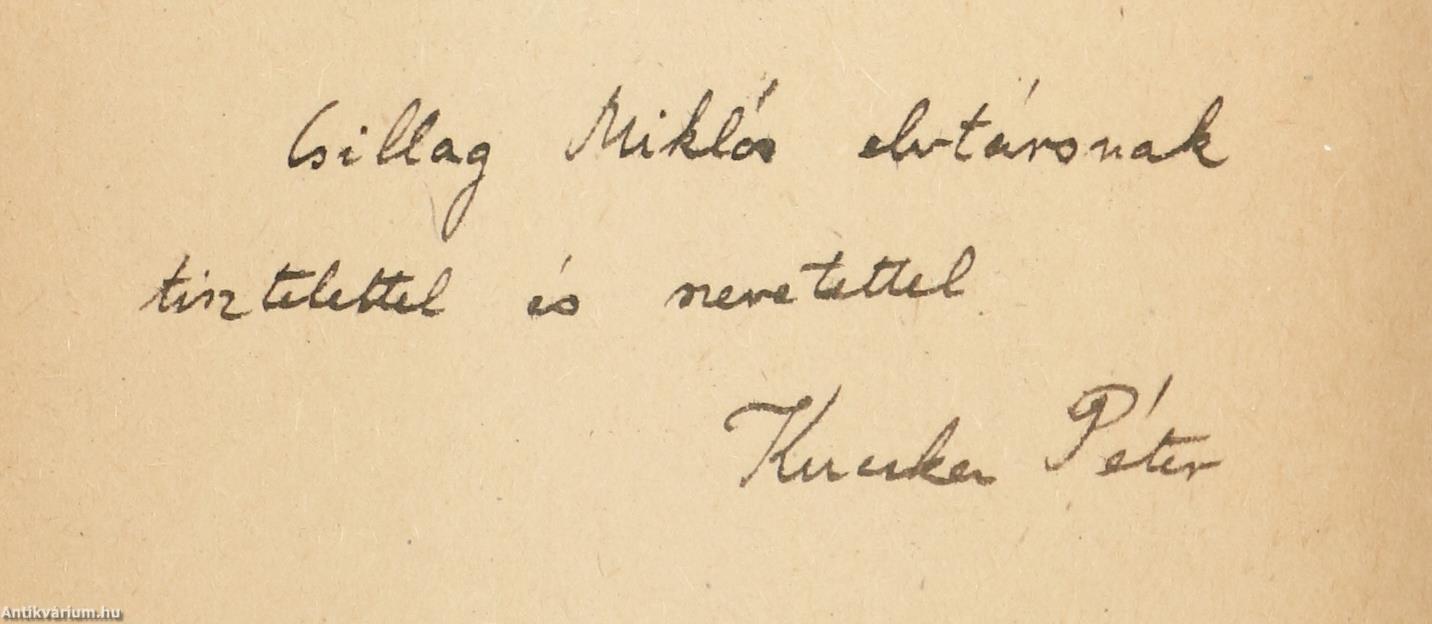 Csillag Miklós elvtársnak
tisztelettel és szeretettel
Kuczka Péter
Antikvárium.hu